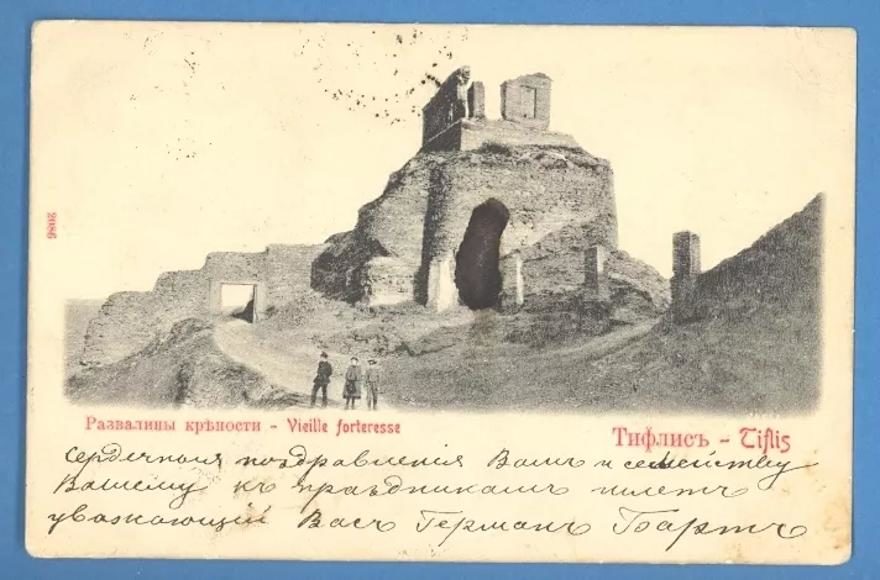 2086
Развалины крѣпости - Vieille forteresse
Тифлисъ - Tiflis
Сердечныя поздравленія Вамъ и семейству
Вашему къ праздникамъ шлетъ
уважающій Васъ Германъ Бартъ